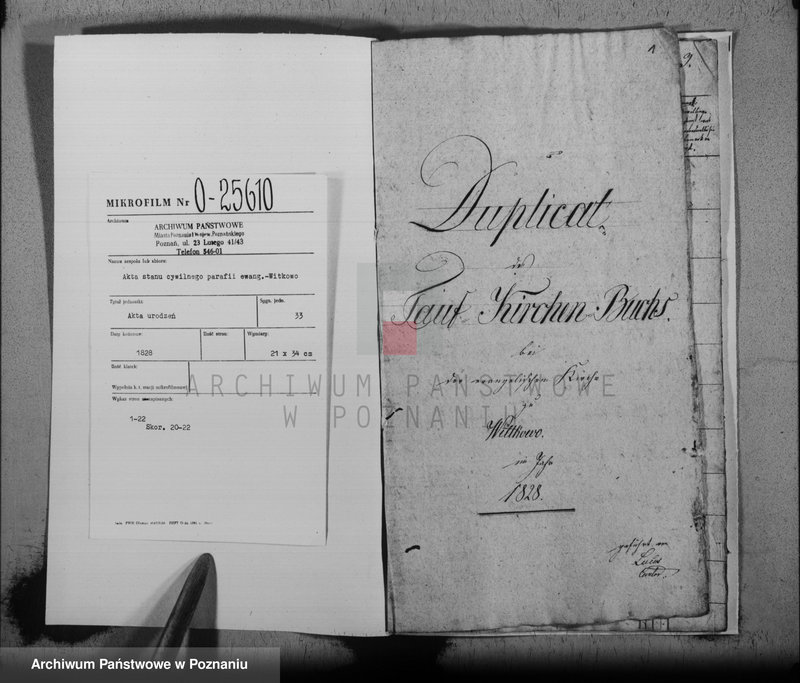 MIKROFILM Nr O-25610
Archiwum
ARCHIWUM PAŃSTWOWE
Miasta Poznania i Wojew. Poznańskiego
Poznań, ul. 23 Lutego 41/43
Telefon 546-01
Nazwa zespołu lub zbioru:
Akta stanu cywilnego parafii ewang.-Witkowo
Tytuł jednostki:
Sygn. jedn.
Akta urodzeń
33
Daty końcowe:
Ilość stron:
Wymiary:
1828
21 x 34 cm
Ilość klatek:
Wypełnia k. t. stacji mikrofilmowej
Wykaz stron
1-22
Skor. 20-22
1
Duplicat
des
Tauf Kirchen-Buchs.
bei
der evangelischen Kirche
zu
Wittkowo.
im Jahr
1828.
geführt von
Lucas
Cantor.
ARCHIWUM PAŃSTWOWE
W POZNANIU
Archiwum Państwowe w Poznaniu